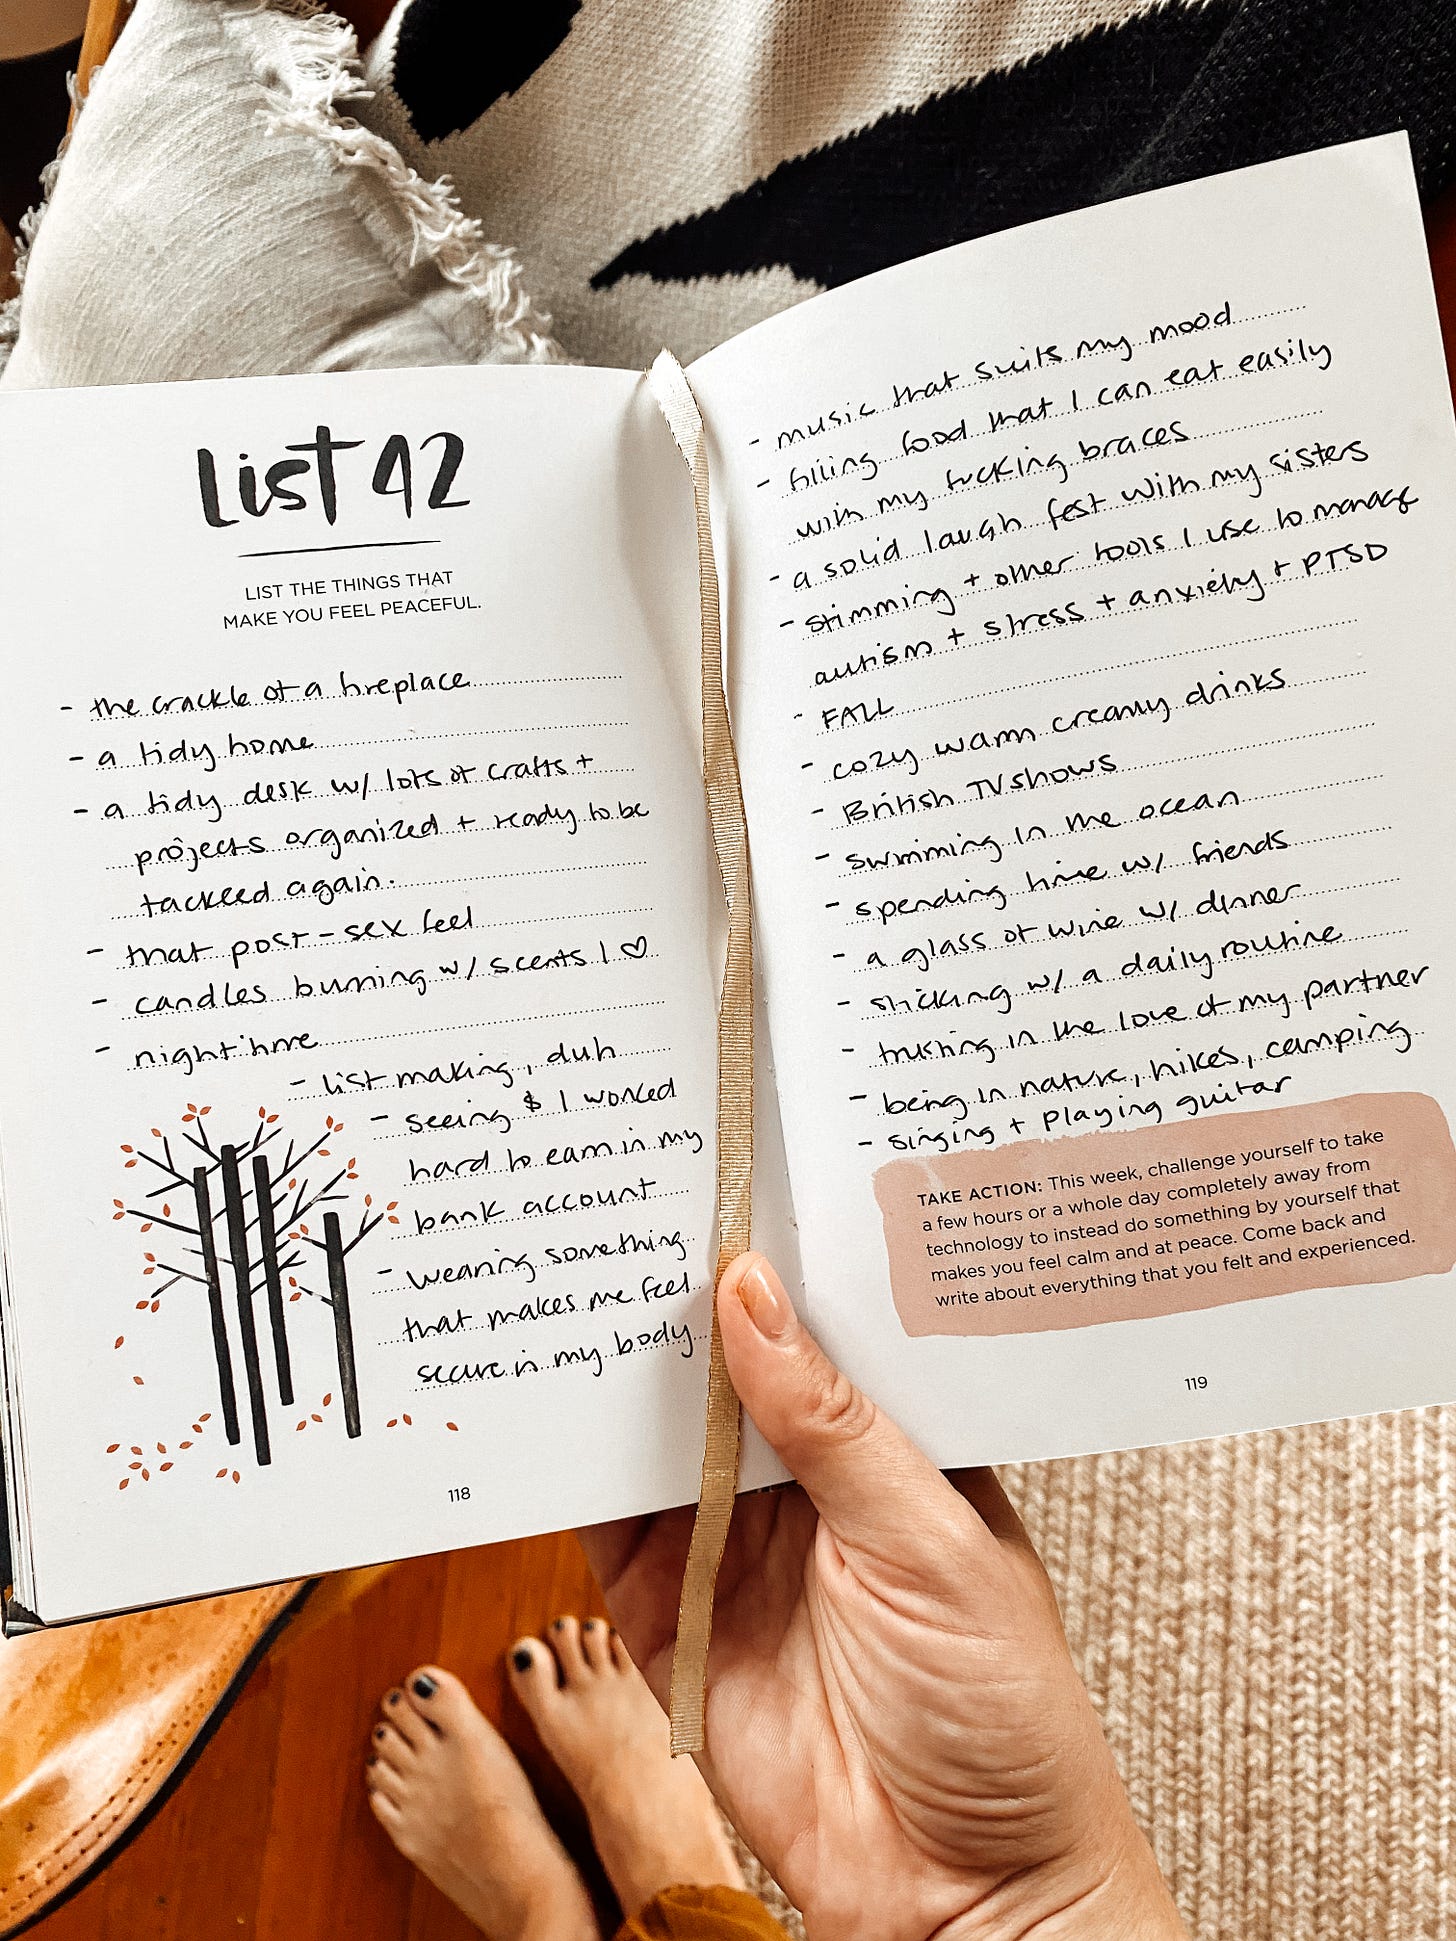 List 42
LIST THE THINGS THAT
MAKE YOU FEEL PEACEFUL.
- the crackle of a fireplace
- a tidy home
- a tidy desk w/ lots of crafts +
projects organized + ready to be
tackeed again.
- that post-sex feel
- candles burning w/ scents I ♡
- nighttime
- list making, duh
- seeing $ I worked
hard to earn in my
bank account
- wearing something
that makes me feel
secure in my body
118
- music that suits my mood
- filling food that I can eat easily
with my fucking braces
- a solid laugh fest with my sisters
- stimming + other tools I use to manage
autism + stress + anxiety + PTSD
- FALL
- cozy warm creamy drinks
- British TV shows
- swimming in the ocean
- spending time w/ friends
- a glass of wine w/ dinner
- sticking w/ a daily routine
- trusting in the love of my partner
- being in nature, hikes, camping
- singing + playing guitar
TAKE ACTION: This week, challenge yourself to take
a few hours or a whole day completely away from
technology to instead do something by yourself that
makes you feel calm and at peace. Come back and
write about everything that you felt and experienced.
119